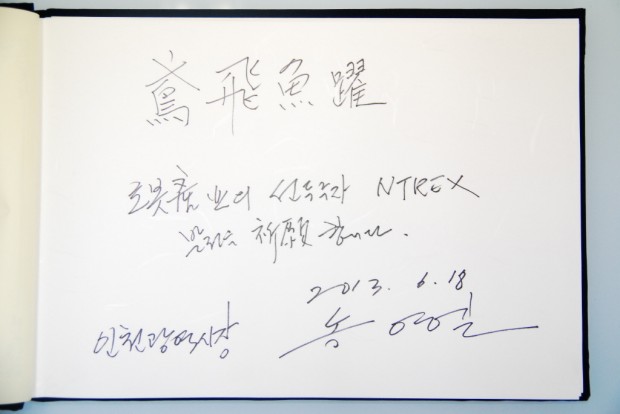 鳶飛魚躍
로봇産업의 선두주자 NTREX
발전을 祈願합니다.
2013. 6. 18
인천광역시장 송영길